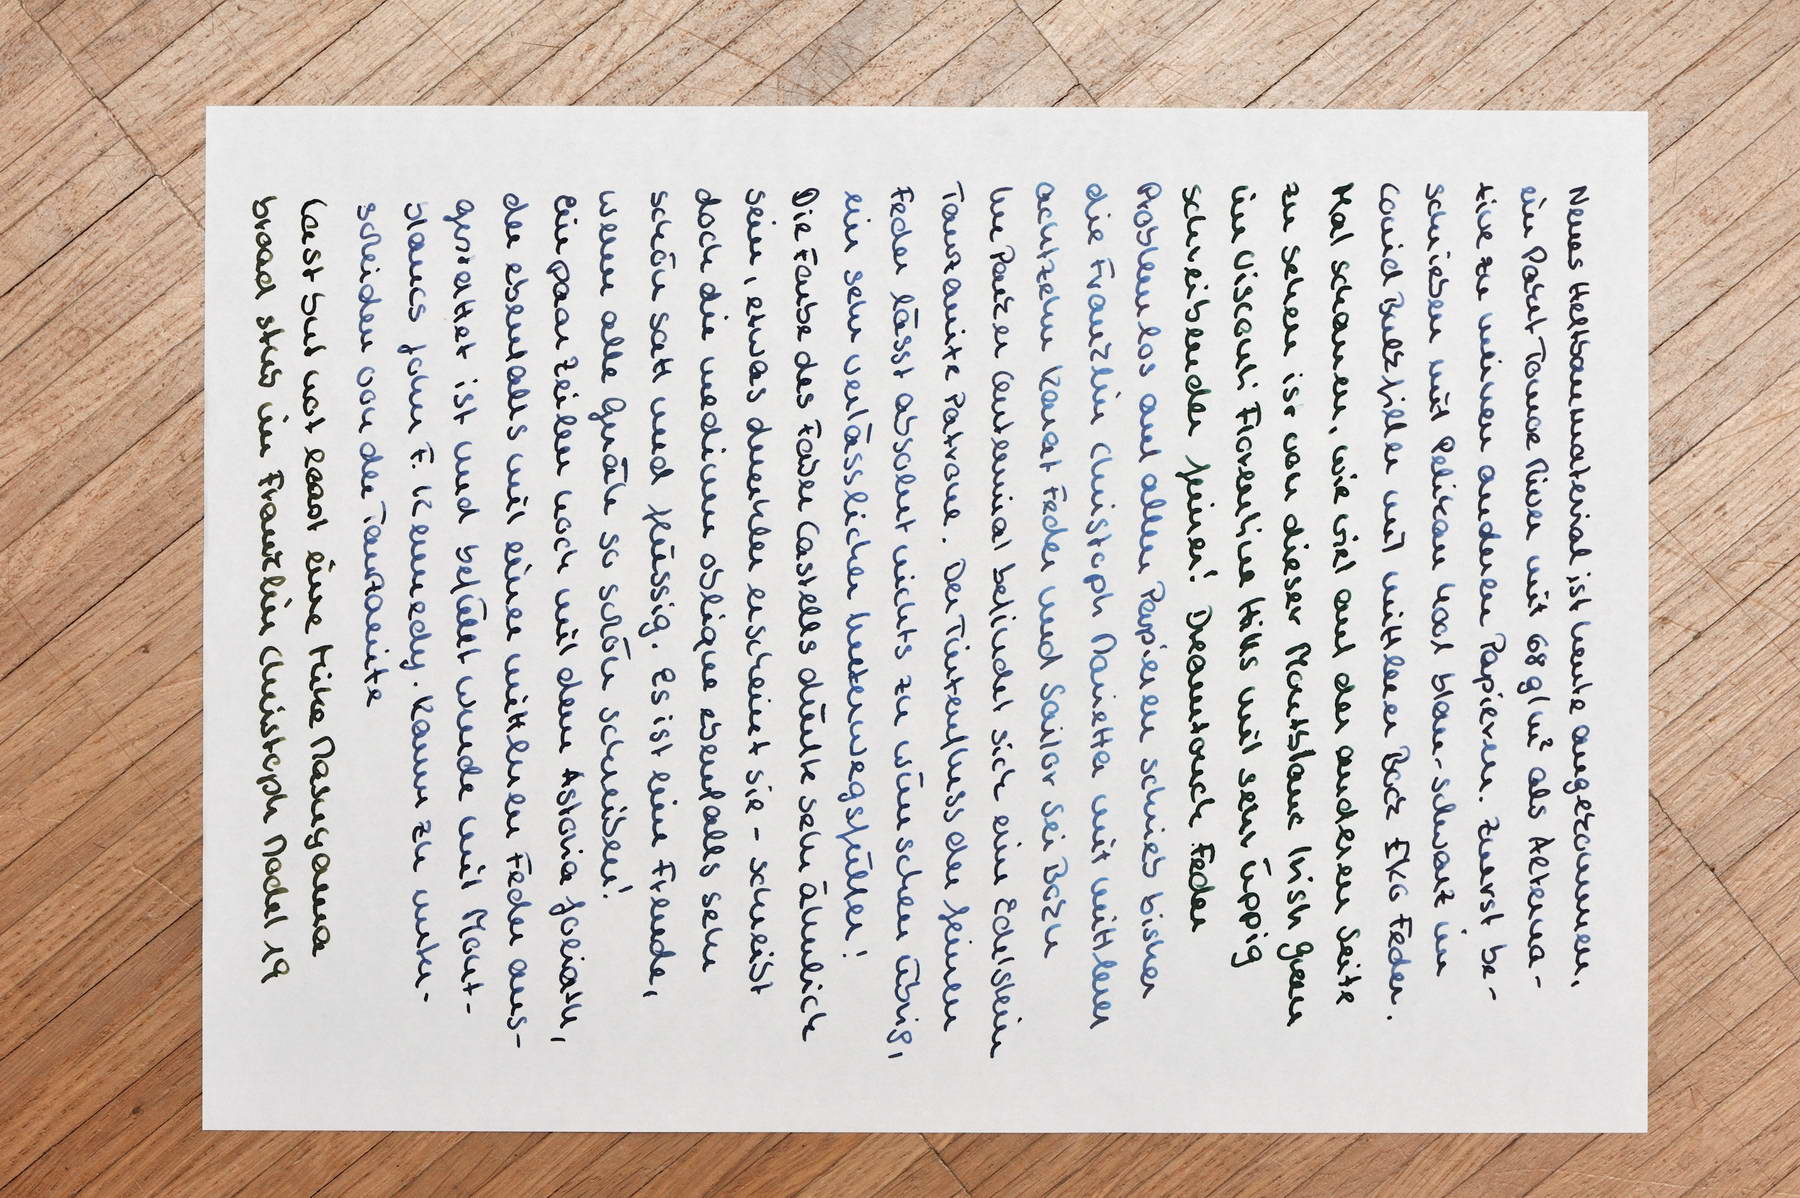 Neues Heftbaumaterial ist heute angekommen,
ein Paket Tomoe River mit 68 g/m² als Alterna-
tive zu meinen anderen Papieren. Zuerst be-
schrieben mit Pelikan 400 blau-schwarz im
Conid Bulkfiller mit mittlerer Bock Feder.
Mal schauen, wie viel auf der anderen Seite
zu sehen ist von dieser Montblanc Irish Green
im Visconti Florentine Hills mit sehr üppig
schreibender feiner! Dreamtouch Feder
Problemlos auf allen Papieren schrieb bisher
die Franklin Christoph Marietta mit mittlerer
achtzehn Karat Feder und Sailor Sei Boku
Im Parker Centennial befindet sich ein Edelstein
Tanzanite Patrone. Der Tintenfluss der feinen
Feder lässt absolut nichts zu wünschen übrig,
ein sehr verlässlicher Unterwegsfüller!
Die Farbe des Faber Castells dürfte sehr ähnlich
sein, etwas dunkler erscheint sie - schreibt
doch die medium oblique ebenfalls sehr
schön satt und flüssig. Es ist eine Freude,
wenn alle Geräte so schön schreiben!
Ein paar Zeilen noch mit dem Astoria Goliath,
der ebenfalls mit einer mittleren Feder aus-
gestattet ist und befüllt wurde mit Mont-
blancs John F. Kennedy. Kaum zu unter-
scheiden von der Tanzanite
Last but not least eine Hike Naruyama
broad stub im Franklin Christoph Model 19